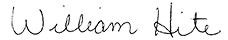 William Hite